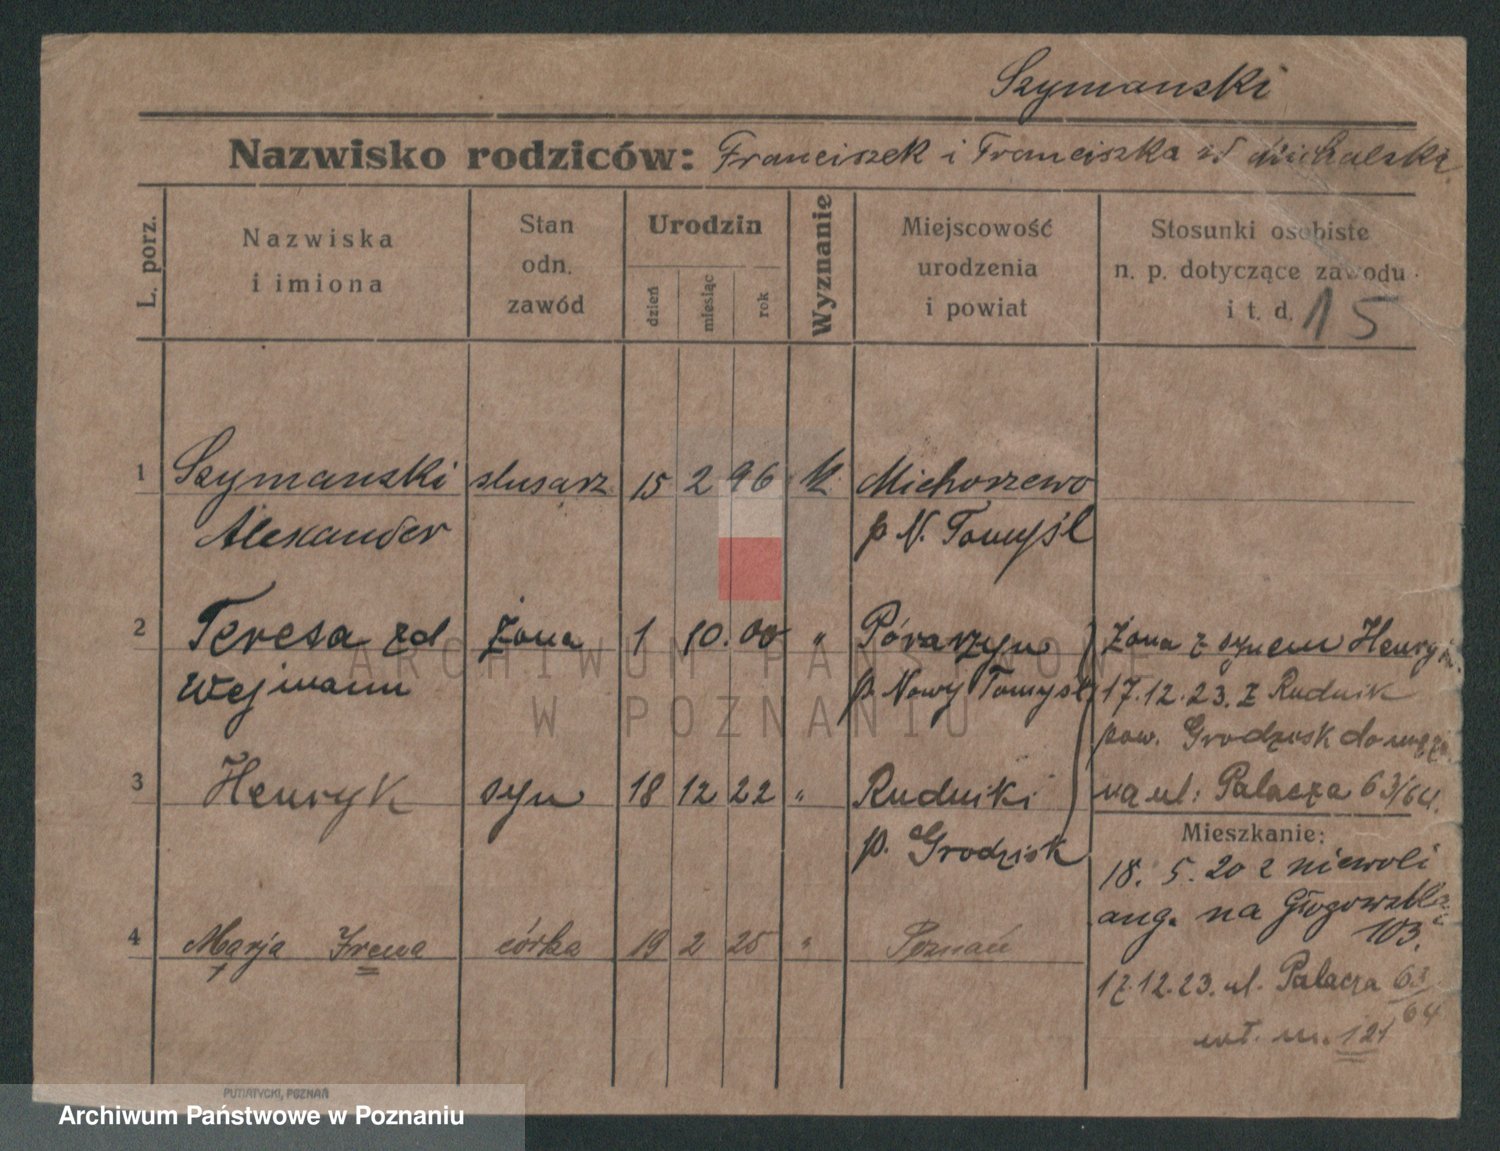 Szymanski
Nazwisko rodziców: Franciszek i Franciszka zd Michalski
L. porz.
Nazwiska
i imiona
Stan
odn.
zawód
Urodzin
dzień
miesiąc
rok
Wyznanie
Miejscowość
urodzenia
i powiat
Stosunki osobiste
n. p. dotyczące zawodu
i t. d. 15
1 Szymanski ślusarz 15 2 96 k Michorzewo
Alexander p N. Tomyśl
2 Teresa zd żona 1 10. 00 " Porażyn
Wejmann p. Nowy Tomyśl
żona z synem Henryk
17.12.23. z Rudnik
pow. Grodzisk do męża
na ul: Palacza 63/64.
3 Henryk syn 18 12 22 " Rudniki
p. Grodzisk
Mieszkanie:
18. 5. 20 z niewoli
ang. na Głogowska
103.
4 Marja Irena córka 19 2 25 " Poznań
17.12.23. ul. Palacza 63/64
m. 121
PUTIATYCKI, POZNAŃ
ARCHIWUM PAŃSTWOWE
W POZNANIU
Archiwum Państwowe w Poznaniu